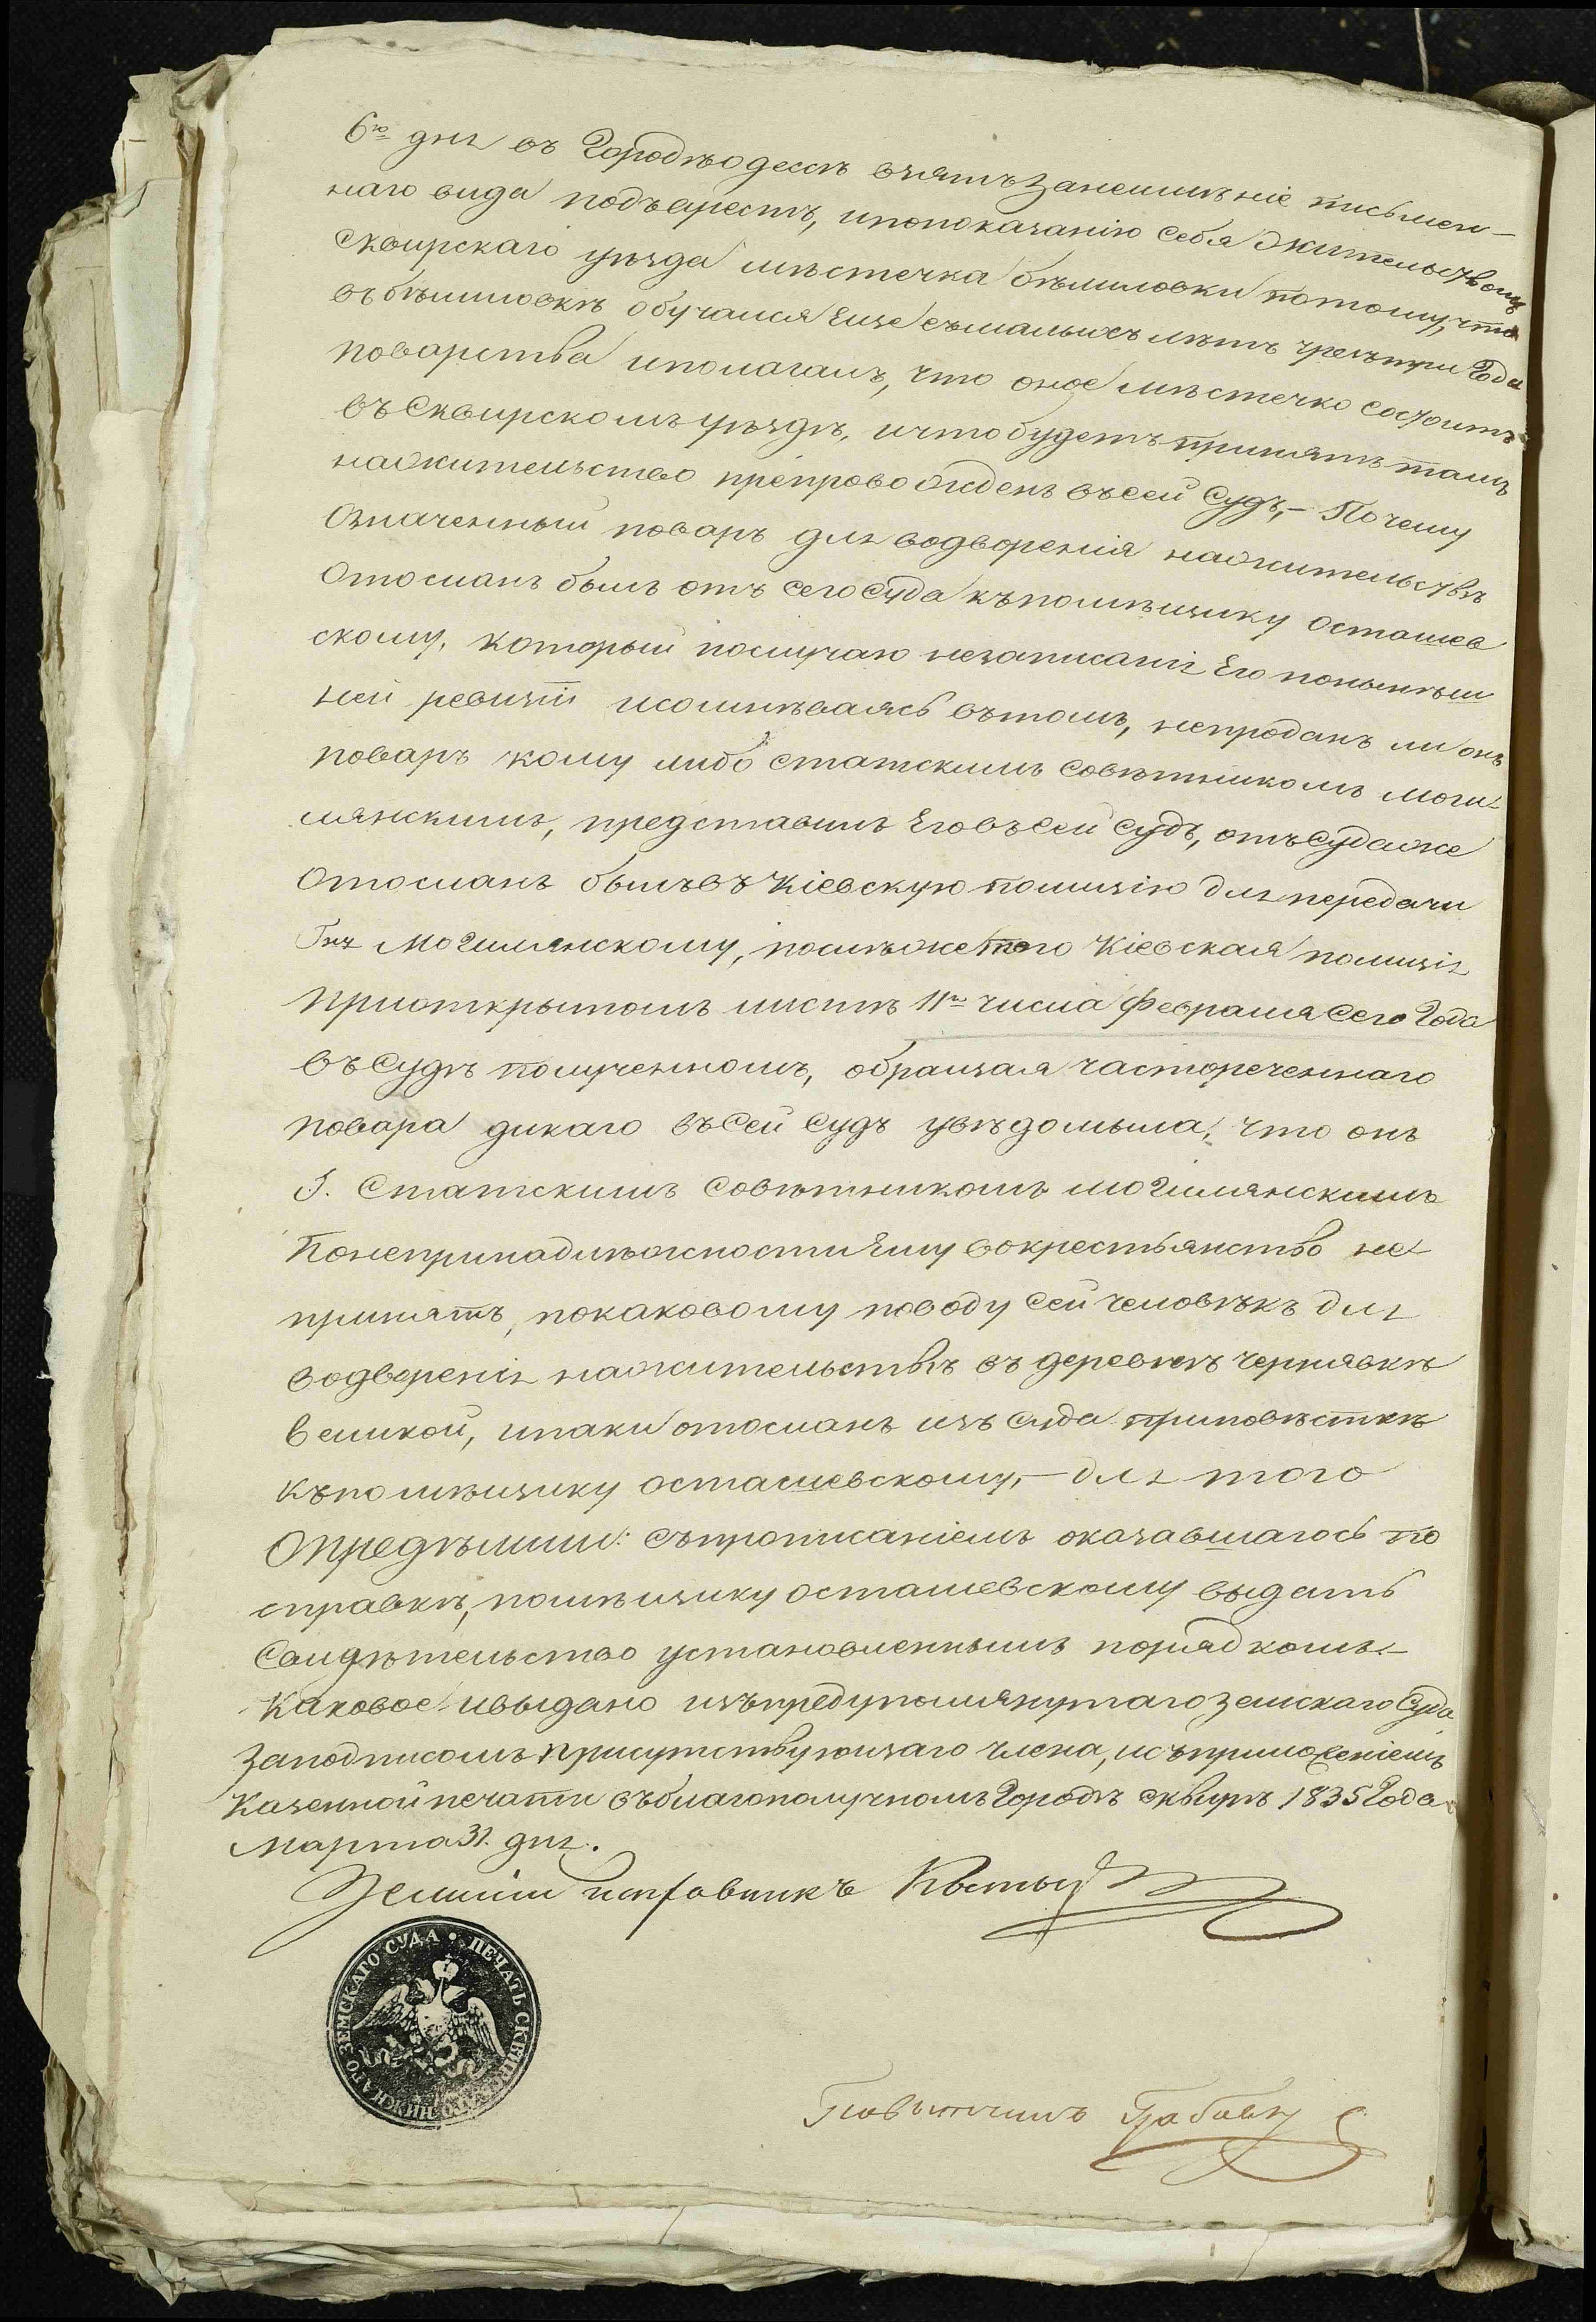 6го дня въ Городѣ одессѣ взятъ занеимѣніе письмен-
наго вида подъарестъ, ипопоказанію себя Жительствомъ
Сквирскаго уѣзда мѣстечка бѣлиловки потому, что
въбѣлиловкѣ обучался Еще съмалыхъ лѣтъ чрезътри Года
поварства иполагалъ, что оное мѣстечко состоитъ
въСквирскомъ уѣздѣ, ичтобудетъ принятъ тамъ
нажительство препровожденъ въсей Судъ,- Почему
Означенный поваръ для водворенія нажительствѣ
Отосланъ былъ отъ сего Суда къпомѣщику Осташев
скому, который послучаю незаписанія Его понынѣш
ней ревизіи исомнѣваясь вътомъ, непроданъ ли онъ
поваръ кому либо статскимъ Совѣтникомъ моги-
лянскимъ, представилъ Его въсей Судъ, отъСудаже
Отосланъ былъ въ Кіевскую полицію для передачи
Гну Могилянскому, послѣже того Кіевская полиція
приоткрытомъ листѣ 11го числа февраля Сего Года
въСудѣ полученномъ, обращая частореченнаго
повара дикаго въСей Судъ увѣдомила, что онъ
Г. Статскимъ Совѣтникомъ могилянскимъ
Понепринадлѣжности Ему вокрестьянство не
принятъ, покаковому поводу Сей человѣкъ для
водворенія нажительствѣ въ деревнѣ чернявкѣ
великой, ипаки отосланъ изъ Суда приповѣсткѣ
къпомѣщику осташевскому,- для того
Опредѣлили: Съпрописаніемъ оказавшагось по
справкѣ, помѣщику осташевскому выдать
Свидѣтельство установленнымъ порядкомъ.-
Каковое ивыдано изъпредупомянутаго земскаго Суда
заподписомъ присутствующаго члена, исъприложеніемъ
Казенной печати въблагополучномъ Городѣ сквирѣ 1835 Года
Марта 31. дня.
Земскій исправникъ
ПЕЧАТЬ СКВИРСКАГО НИЖНАГО ЗЕМСКАГО СУДА
Повытчикъ